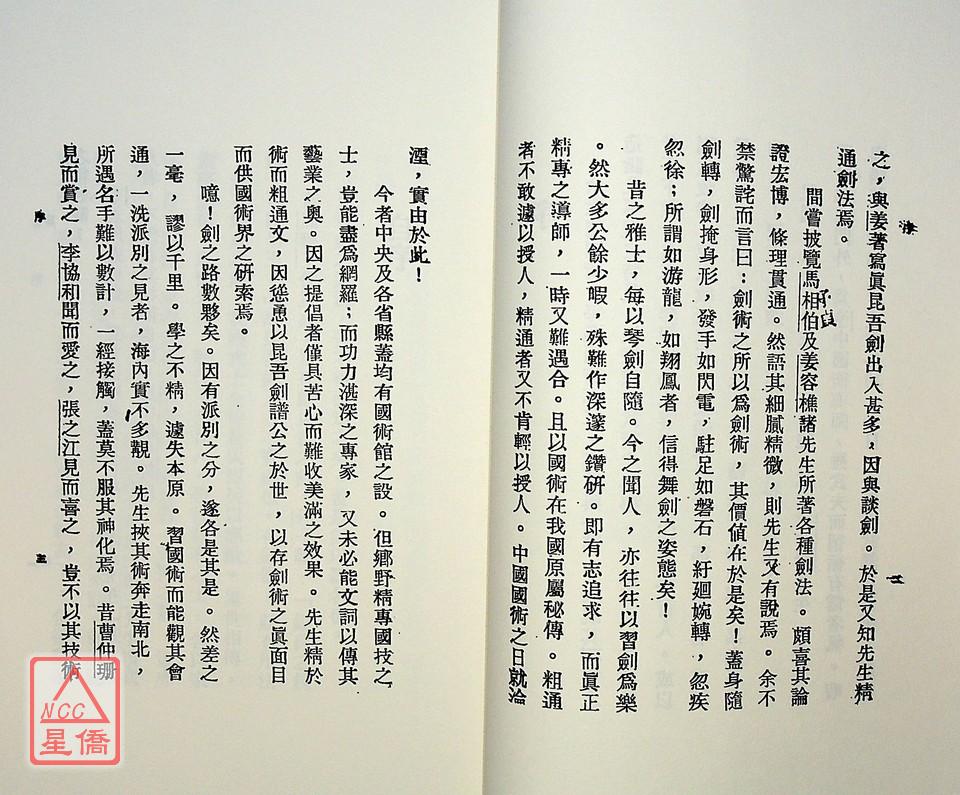 之，與姜著寫眞昆吾劍出入甚多，因與談劍。於是又知先生精
通劍法焉。
間嘗披覽馬相伯及姜容樵諸先生所著各種劍法。頗喜其論
證宏博，條理貫通。然語其細膩精微，則先生又有說焉。余不
禁驚詫而言曰：劍術之所以爲劍術，其價値在於是矣！蓋身隨
劍轉，劍掩身形，發手如閃電，駐足如磐石，紆廻婉轉，忽疾
忽徐；所謂如游龍，如翔鳳者，信得舞劍之姿態矣！
昔之雅士，每以琴劍自隨。今之聞人，亦往往以習劍爲樂
。然大多公餘少暇，殊難作深邃之鑽硏。即有志追求，而眞正
精專之導師，一時又難遇合。且以國術在我國原屬秘傳。粗通
者不敢遽以授人，精通者又不肯輕以授人。中國國術之日就淪
湮，實由於此！
今者中央及各省縣蓋均有國術館之設。但鄉野精專國技之
士，豈能盡爲網羅；而功力湛深之專家，又未必能文詞以傳其
藝業之奧。因之提倡者僅具苦心而難收美滿之效果。先生精於
術而粗通文，因慫恿以昆吾劍譜公之於世，以存劍術之眞面目
而供國術界之硏索焉。
噫！劍之路數夥矣。因有派別之分，遂各是其是。然差之
一毫，謬以千里。學之不精，遽失本原。習國術而能觀其會
通，一洗派別之見者，海內實不多覯。先生挾其術奔走南北，
所遇名手難以數計，一經接觸，蓋莫不服其神化焉。昔曹仲珊
見而賞之，李協和聞而愛之，張之江見而喜之，豈不以其技術
序
五
NCC
星僑